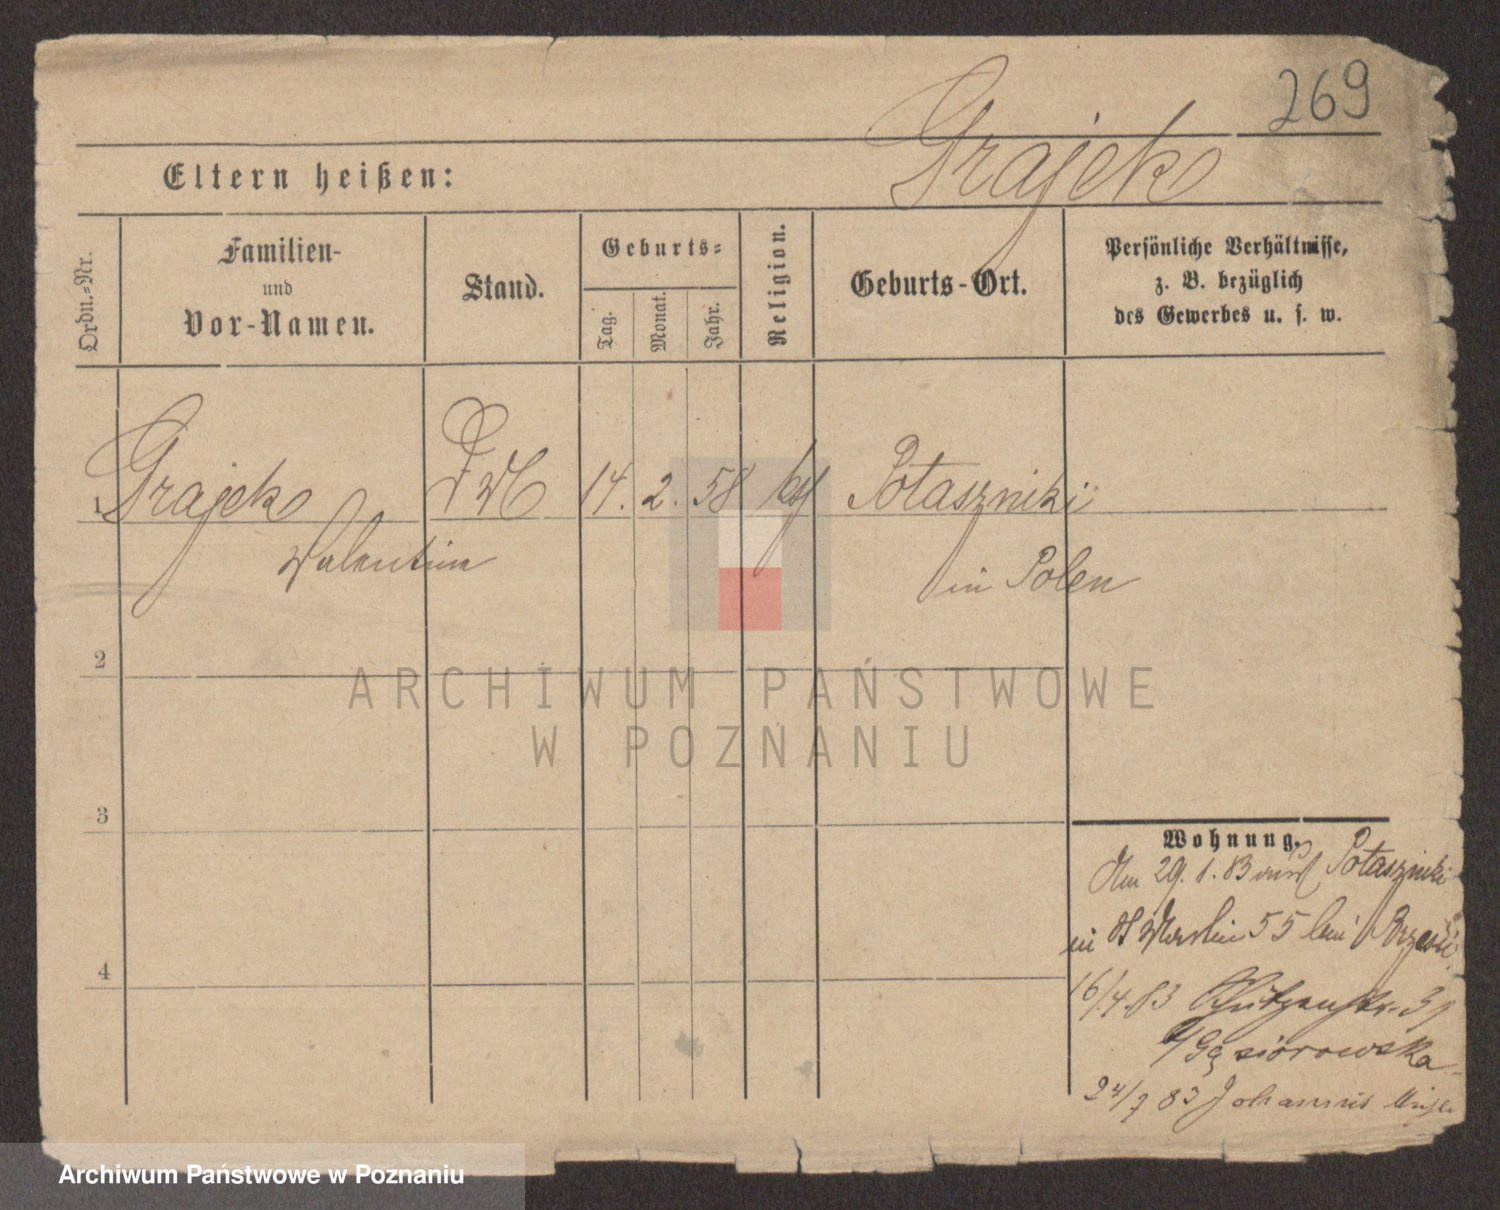 269
Grajek
Eltern heißen:
Ordn.=Nr.
Familien-
und
Vor-Namen.
Stand.
Geburts=
Tag.
Monat.
Jahr.
Religion.
Geburts-Ort.
Persönliche Verhältnisse,
z. B. bezüglich
des Gewerbes u. s. w.
1 Grajek 14. 2. 58 kat Potaszniki
Valentin in Polen
2
ARCHIWUM PAŃSTWOWE
W POZNANIU
3
Wohnung.
Am 29. 1. 83 Potaszniki
in St Martin 55 bei
16/4. 83 Schützenstr. 31
Gąsiorowska
4
24/7 83 Johannis
Archiwum Państwowe w Poznaniu